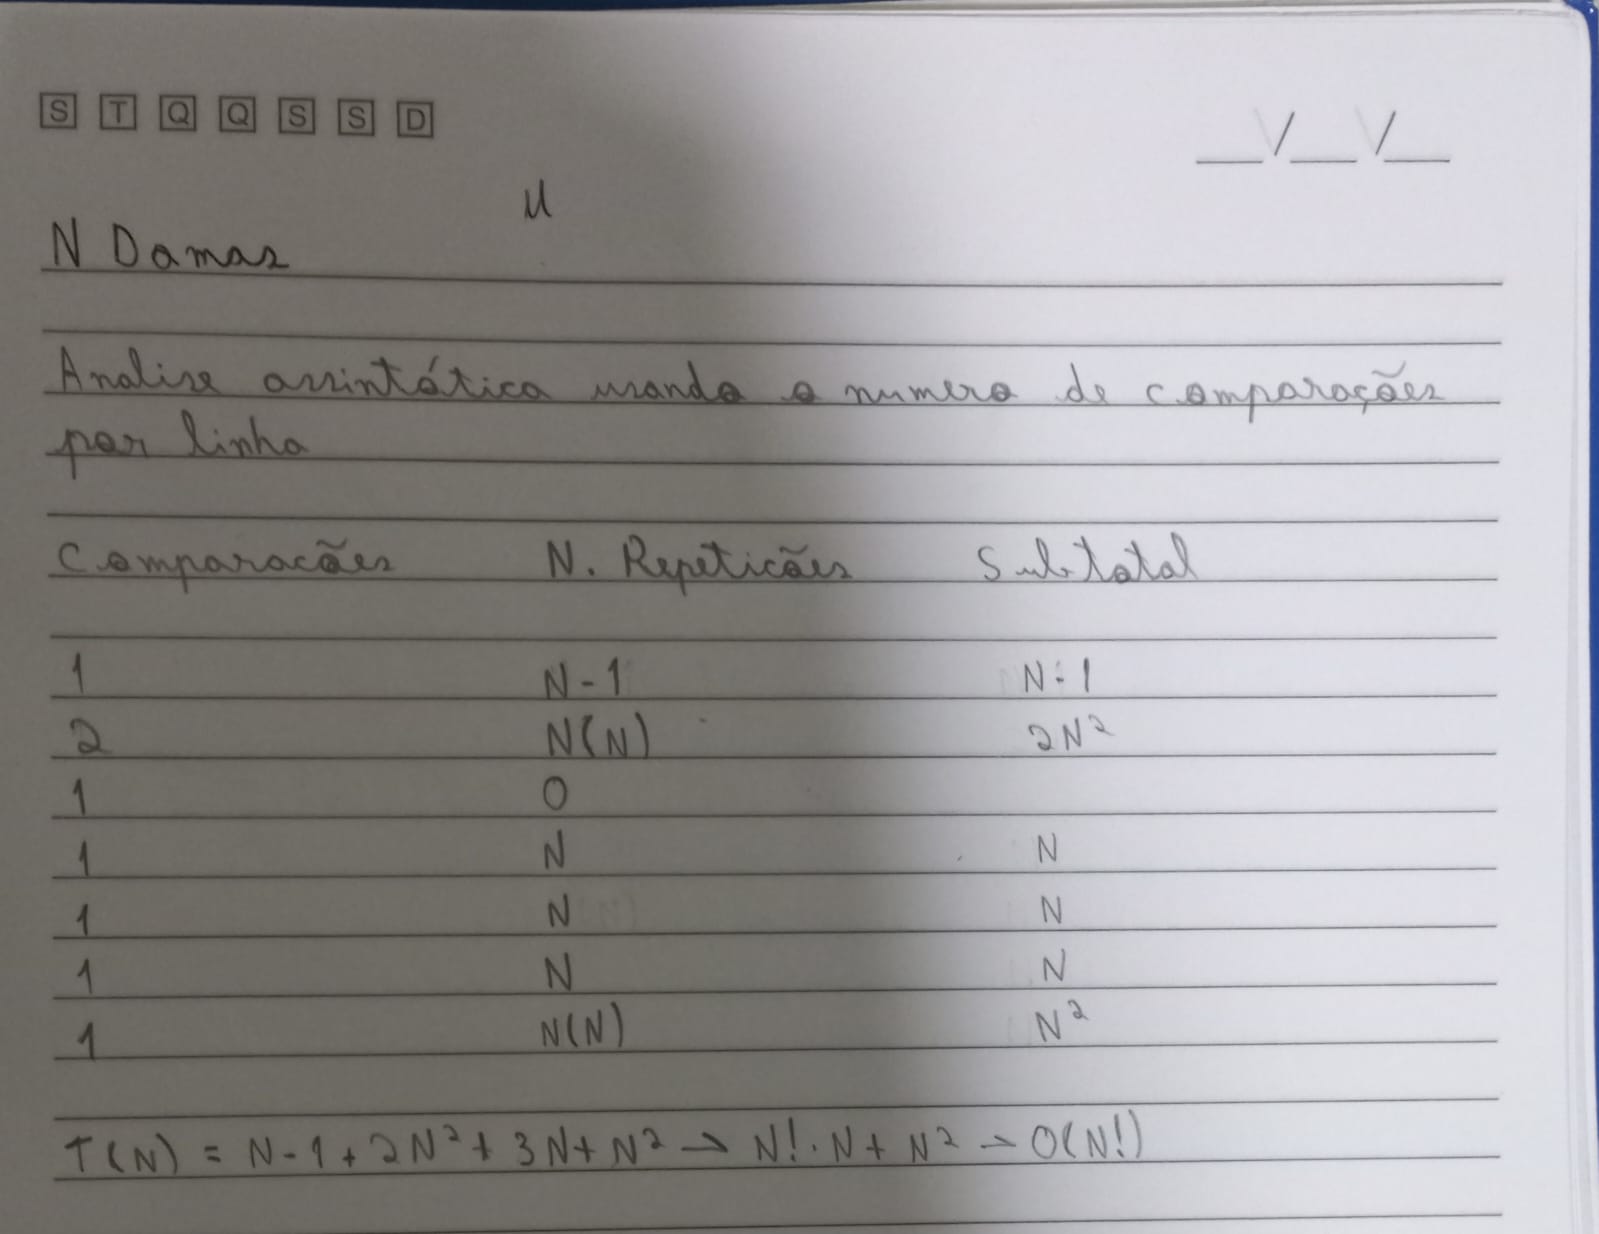 S T Q Q S S D
__/__/__
u
N Damas
Analise assintótica usando o numero de comparações
por linha
Comparacões N. Repeticões Subtotal
1 N-1 N-1
2 N(N) 2N²
1 0
1 N N
1 N N
1 N N
1 N(N) N²
T(N) = N-1+2N²+3N+N² → N!·N+N² → O(N!)